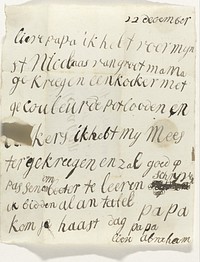 22 december
lieve papa ik hebt voor myn
st Nicolaas van groot mama
ge kreegen een kooker met
ge couleurde potlooden en
kers ik hebt my Mees
ter gekreegen en zal goed
pas sen om beeter te leeren schryv
ik bidden al an tafel papa
kom je haast dag papa
lieve Abraham